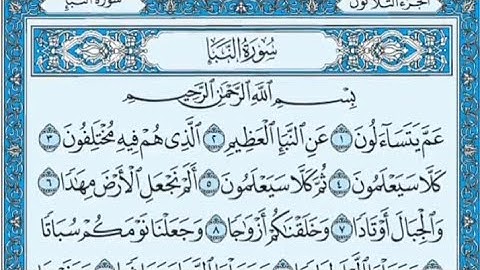 الجزء الثلاثون سورة النبإ
سُورَةُ النَّبَإِ
بِسْمِ اللَّهِ الرَّحْمَٰنِ الرَّحِيمِ
عَمَّ يَتَسَآءَلُونَ ١ عَنِ النَّبَإِ الْعَظِيمِ ٢ الَّذِي هُمْ فِيهِ مُخْتَلِفُونَ ٣
كَلَّا سَيَعْلَمُونَ ٤ ثُمَّ كَلَّا سَيَعْلَمُونَ ٥ أَلَمْ نَجْعَلِ الْأَرْضَ مِهَٰدًا ٦
وَالْجِبَالَ أَوْتَادًا ٧ وَخَلَقْنَٰكُمْ أَزْوَٰجًا ٨ وَجَعَلْنَا نَوْمَكُمْ سُبَاتًا